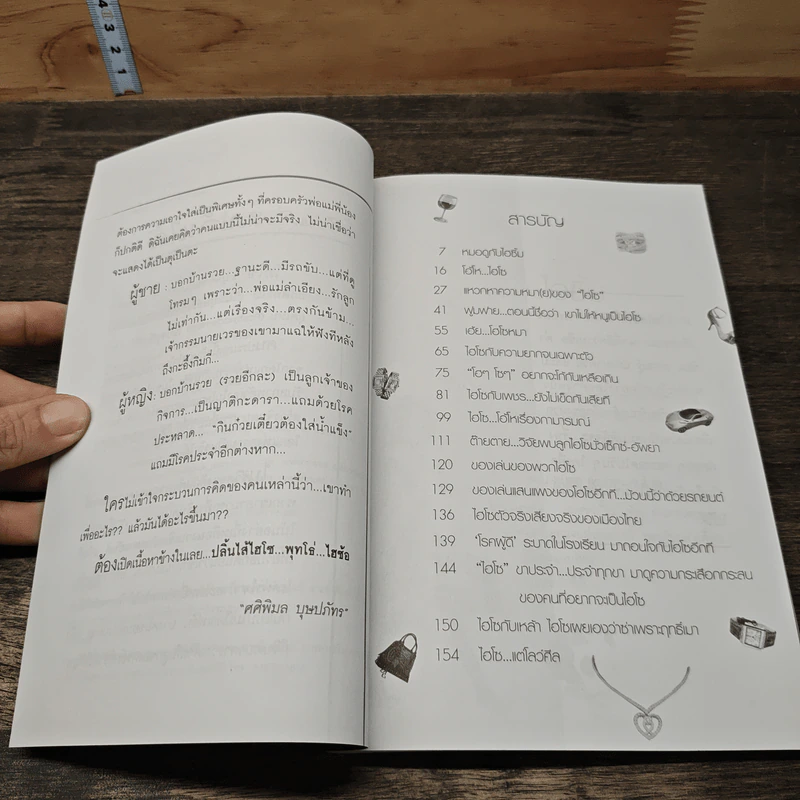 4
3
2
1
ต้องการความเอาใจใส่เป็นพิเศษทั้งๆ ที่ครอบครัวพ่อแม่พี่น้อง
ก็ปกติดี ดิฉันเคยคิดว่าคนแบบนี้ไม่น่าจะมีจริง ไม่น่าเชื่อว่า
จะแสดงได้เป็นตุเป็นตะ
ผู้ชาย : บอกบ้านรวย...ฐานะดี...มีรถขับ...แต่ที่ดู
โทรมๆ เพราะว่า...พ่อแม่ลำเอียง...รักลูก
ไม่เท่ากัน...แต่เรื่องจริง...ตรงกันข้าม...
เจ้ากรรมนายเวรของเขามาแฉให้ฟังทีหลัง
ถึงกะอึ้งกิมกี่...
ผู้หญิง: บอกบ้านรวย (รวยอีกละ) เป็นลูกเจ้าของ
กิจการ...เป็นญาติกะดารา...แถมด้วยโรค
ประหลาด... “กินก๋วยเตี๋ยวต้องใส่น้ำแข็ง”
แถมมีโรคประจำอีกต่างหาก...
ใครไม่เข้าใจกระบวนการคิดของคนเหล่านี้ว่า...เขาทำ
เพื่ออะไร?? แล้วมันได้อะไรขึ้นมา??
ต้องเปิดเนื้อหาข้างในเลย...ปลิ้นไส้ไฮโซ...พุทโธ่...ไฮซ้อ
“ศศิพิมล บุษปภัทร”
สารบัญ
7 หมอดูกับไฮซิ้ม
16 โฮ้โห...ไฮโซ
27 แหวกหาความหมา(ย)ของ “ไฮโซ”
41 ฟูมฟาย...ตอนนี้ชื่อว่า เขาไม่ให้หนูเป็นไฮโซ
55 เฮ้ย...โฮโซหมา
65 ไฮโซกับความยากจนเฉพาะตัว
75 “โอๆ โซๆ” อยากจะโก้กันเหลือเกิน
81 ไฮโซกับเพชร...ยังไม่เข็ดกันเสียที
99 ไฮโซ...โฮ้โหเรื่องกามารมณ์
111 ต๊ายตาย...วิจัยพบลูกไฮโซมั่วเซ็กซ์-อัพยา
120 ของเล่นของพวกไฮโซ
129 ของเล่นแสนแพงของไฮโซอีกที...ม้วนนี้ว่าด้วยรถยนต์
136 ไฮโซตัวจริงเสียงจริงของเมืองไทย
139 ‘โรคผู้ดี’ ระบาดในโรงเรียน มาถอนใจกับไฮโซอีกที
144 “ไฮโซ” ขาประจำ...ประจำทุกขา มาดูความกระเสือกกระสน
ของคนที่อยากจะเป็นไฮโซ
150 ไฮโซกับเหล้า ไฮโซเผยเองว่าซ่าเพราะฤทธิ์เมา
154 ไฮโซ...แต่โลว์ศีล